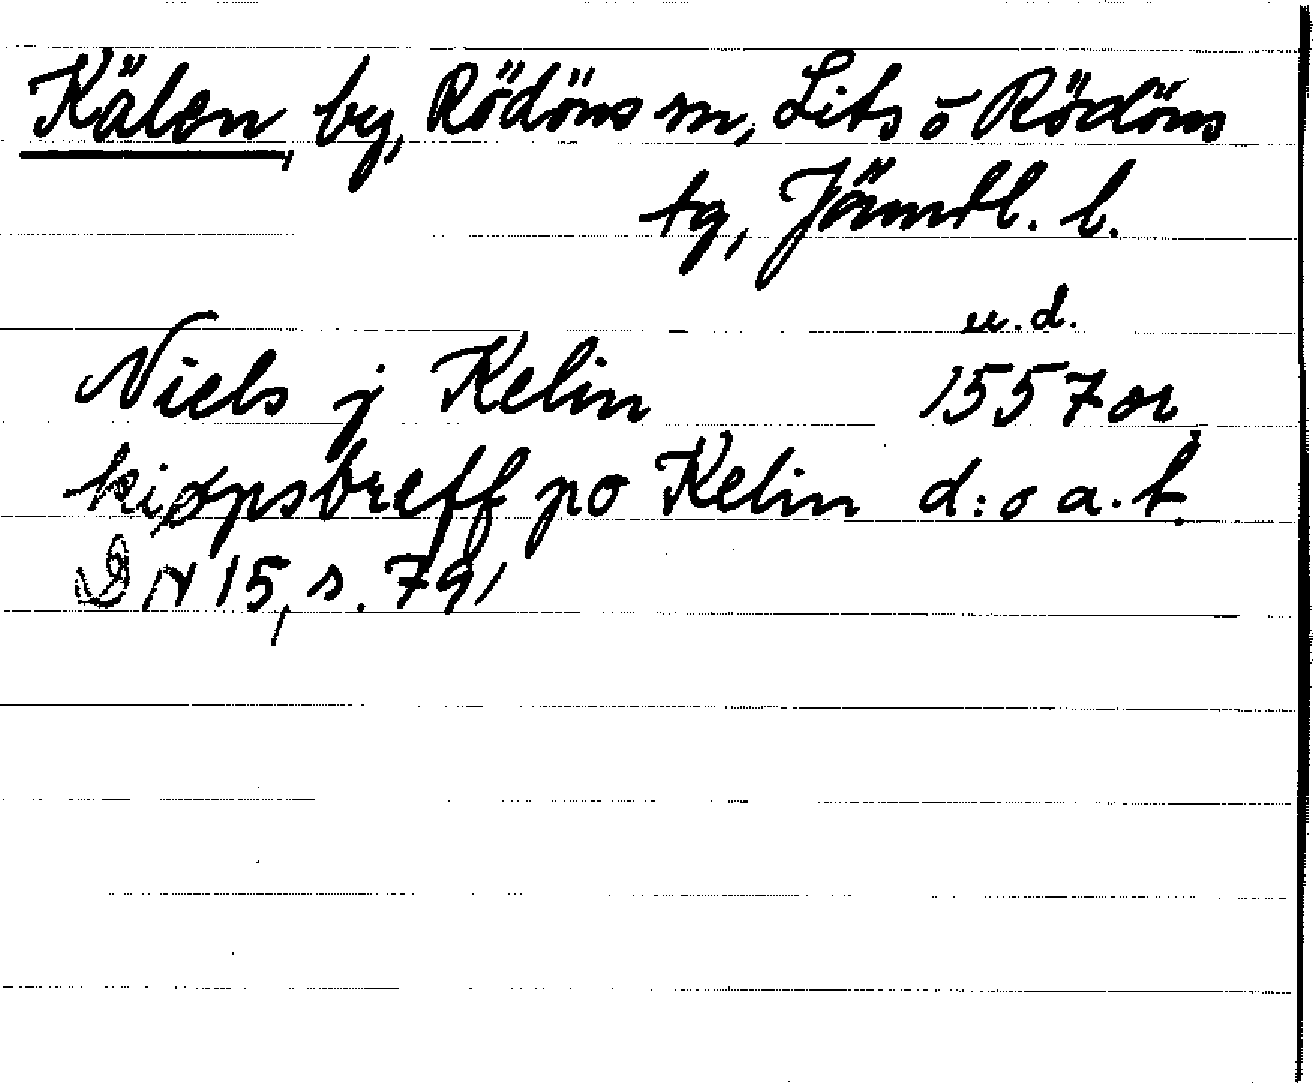 Kälen, by, Rödöns sn, Lits o Rödöns
tg, Jämtl. l.
u.d.
Niels j Kelin 1557 or,
kiøpsbreff po Kelin d:o a.t.
DN 15, s. 791